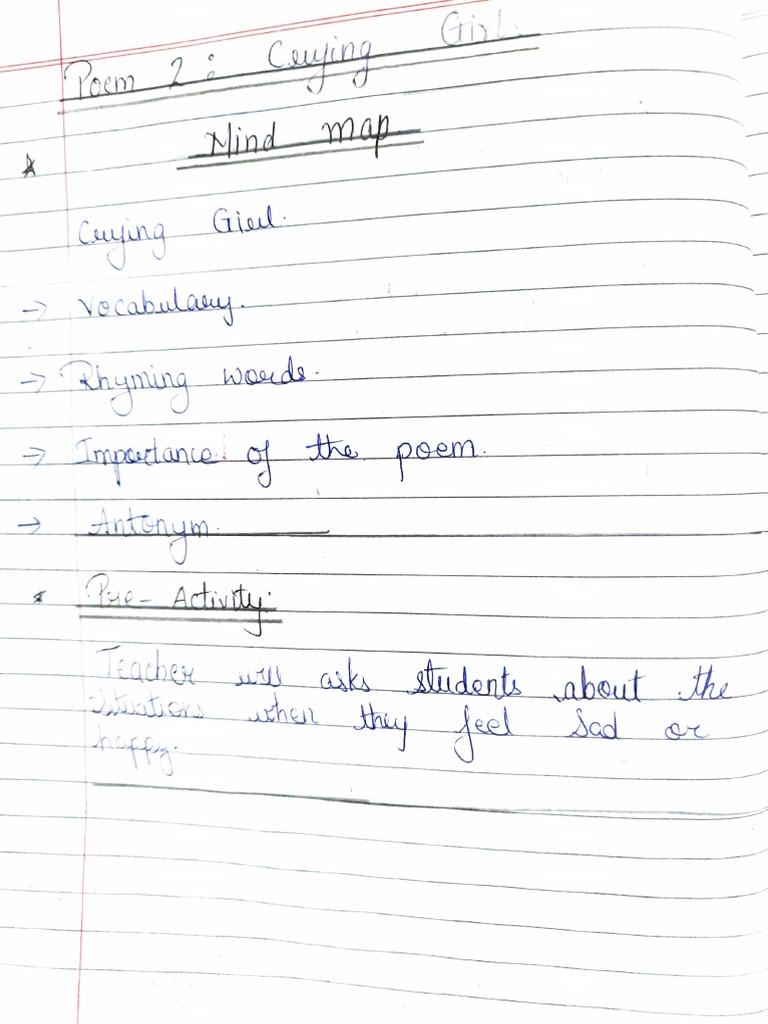 Poem 2: Crying Girl
Mind map
Crying Girl.
→ Vocabulary.
→ Rhyming words.
→ Importance of the poem.
→ Antonym.
* Pre-Activity:
Teacher will asks students about the
situations when they feel sad or
happy.